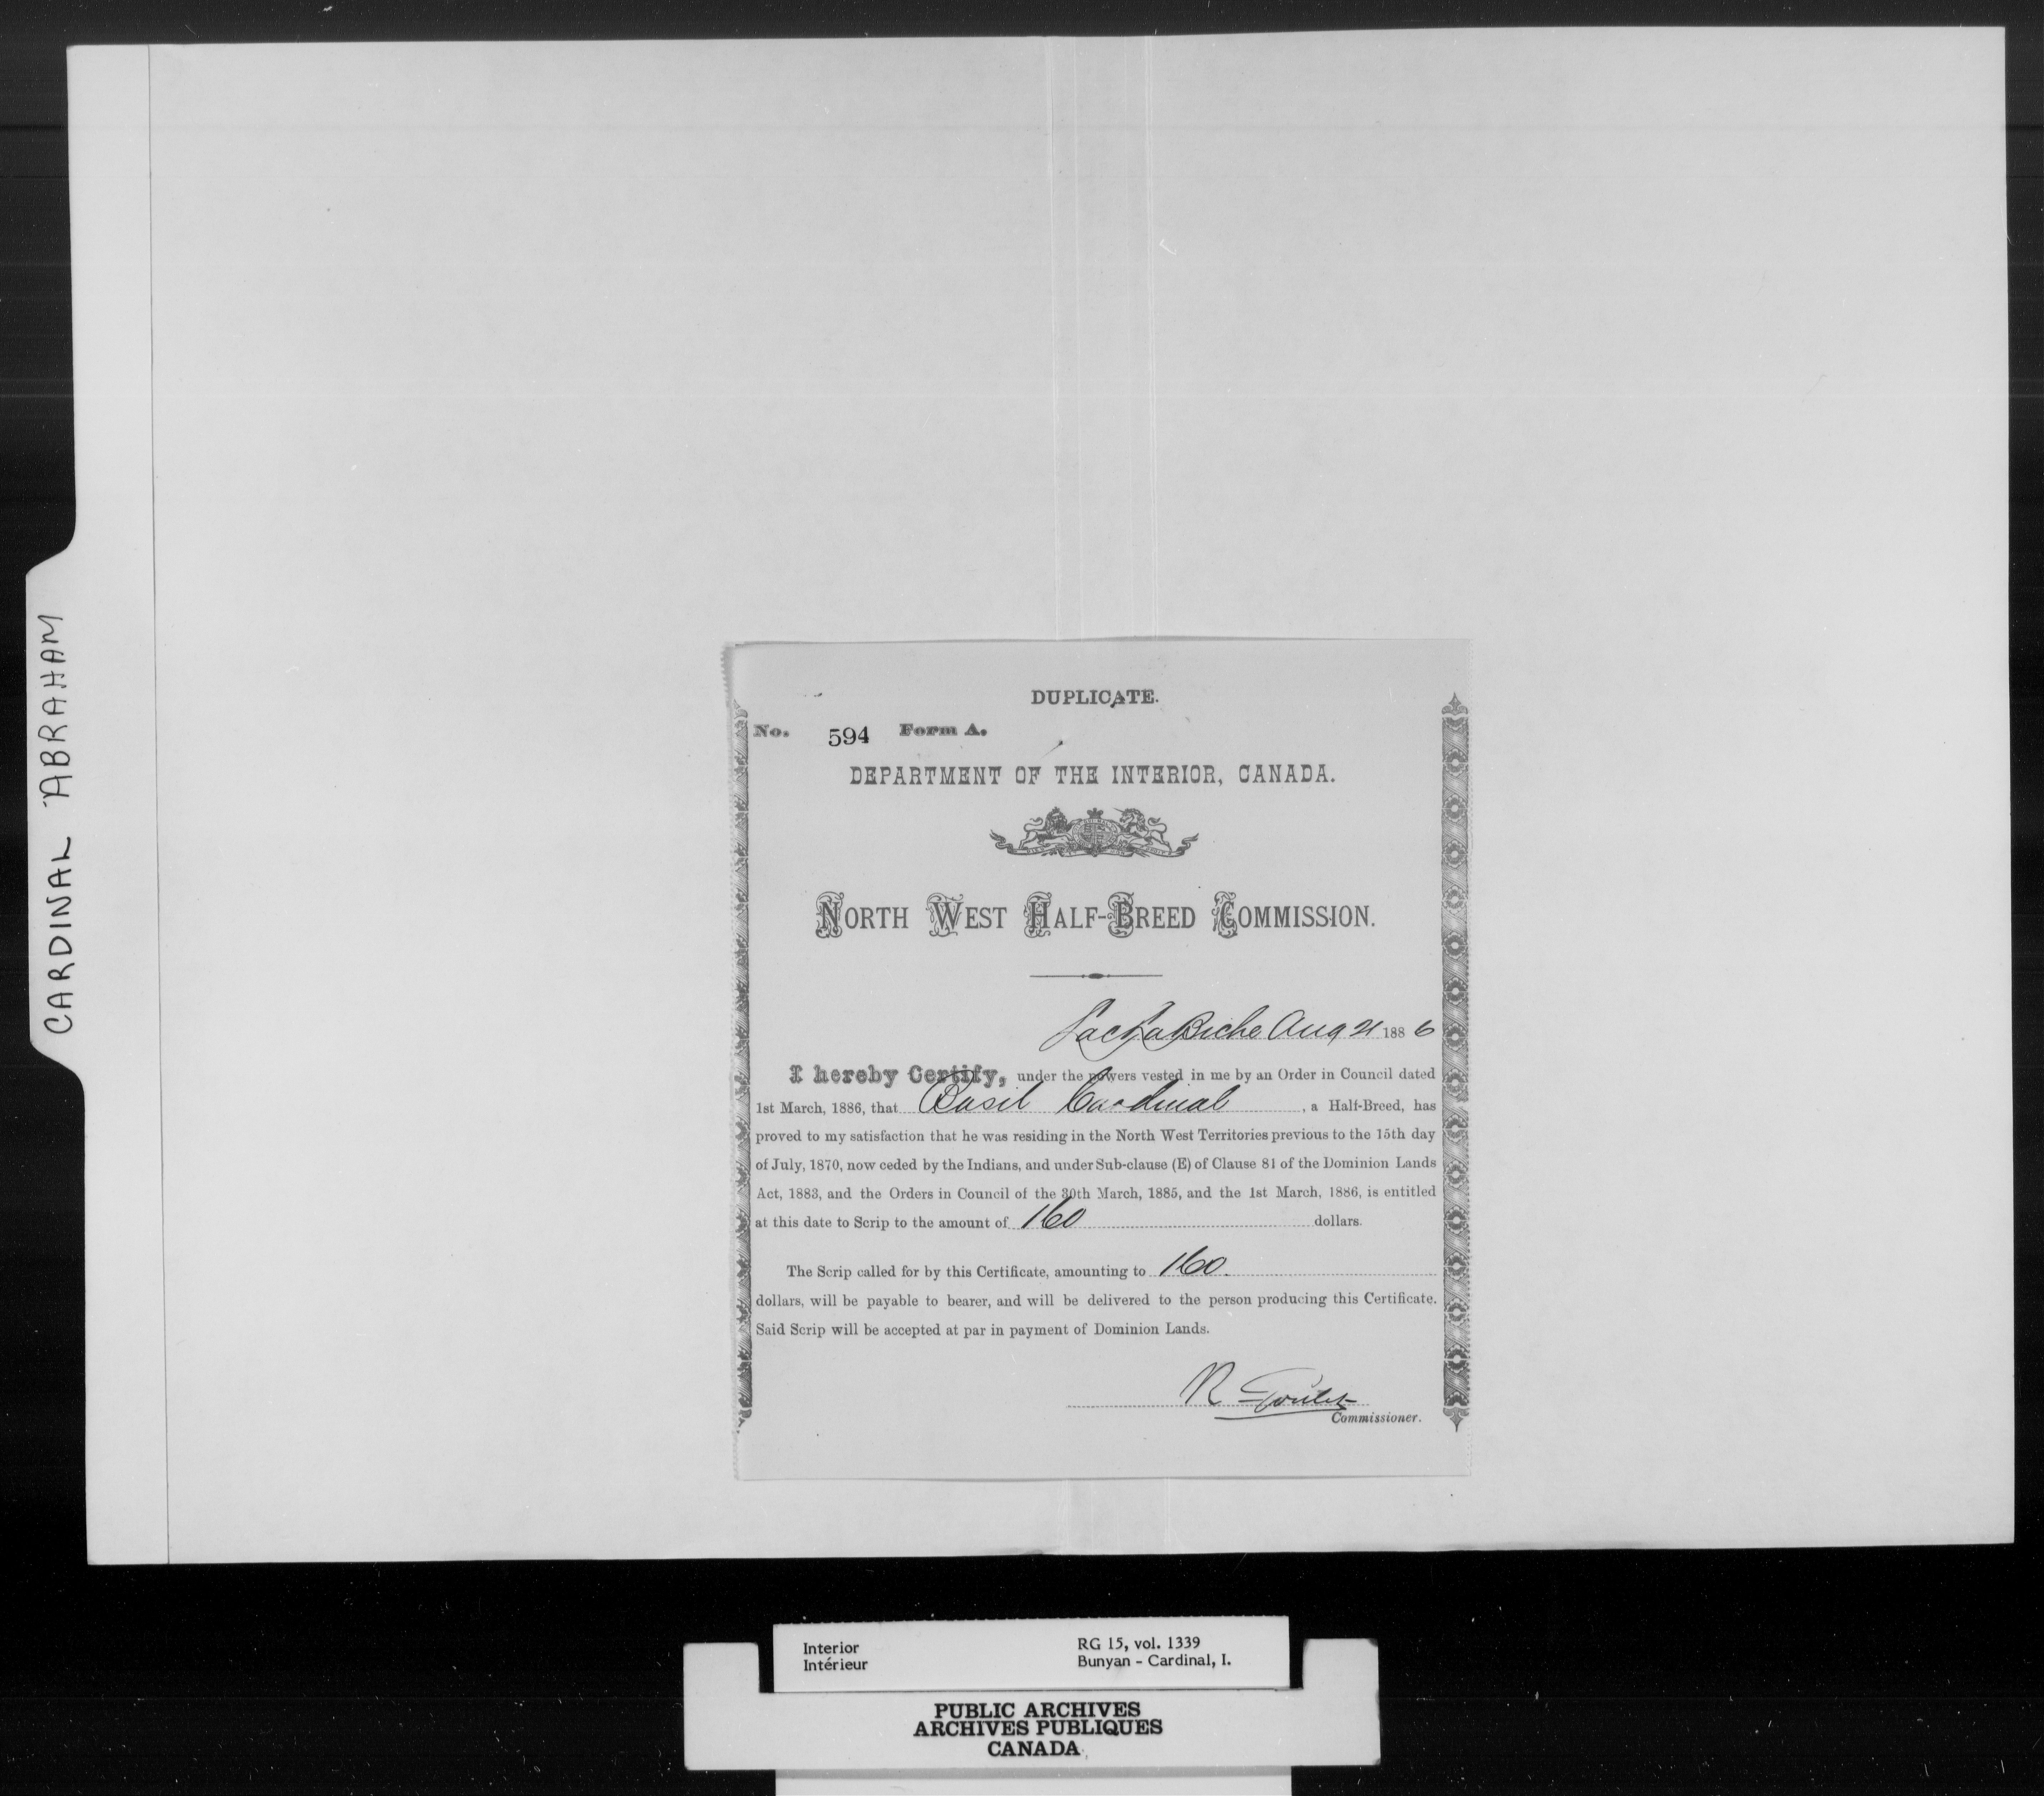 CARDINAL ABRAHAM
DUPLICATE.
No. 594 Form A.
DEPARTMENT OF THE INTERIOR, CANADA.
NORTH WEST HALF-BREED COMMISSION.
Lac La Biche Aug 21 1886
I hereby Certify, under the powers vested in me by an Order in Council dated
1st March, 1886, that Basil Cardinal, a Half-Breed, has
proved to my satisfaction that he was residing in the North West Territories previous to the 15th day
of July, 1870, now ceded by the Indians, and under Sub-clause (E) of Clause 81 of the Dominion Lands
Act, 1883, and the Orders in Council of the 30th March, 1885, and the 1st March, 1886, is entitled
at this date to Scrip to the amount of 160 dollars.
The Scrip called for by this Certificate, amounting to 160.
dollars, will be payable to bearer, and will be delivered to the person producing this Certificate.
Said Scrip will be accepted at par in payment of Dominion Lands.
R Goulet
Commissioner.
Interior RG 15, vol. 1339
Intérieur Bunyan - Cardinal, I.
PUBLIC ARCHIVES
ARCHIVES PUBLIQUES
CANADA